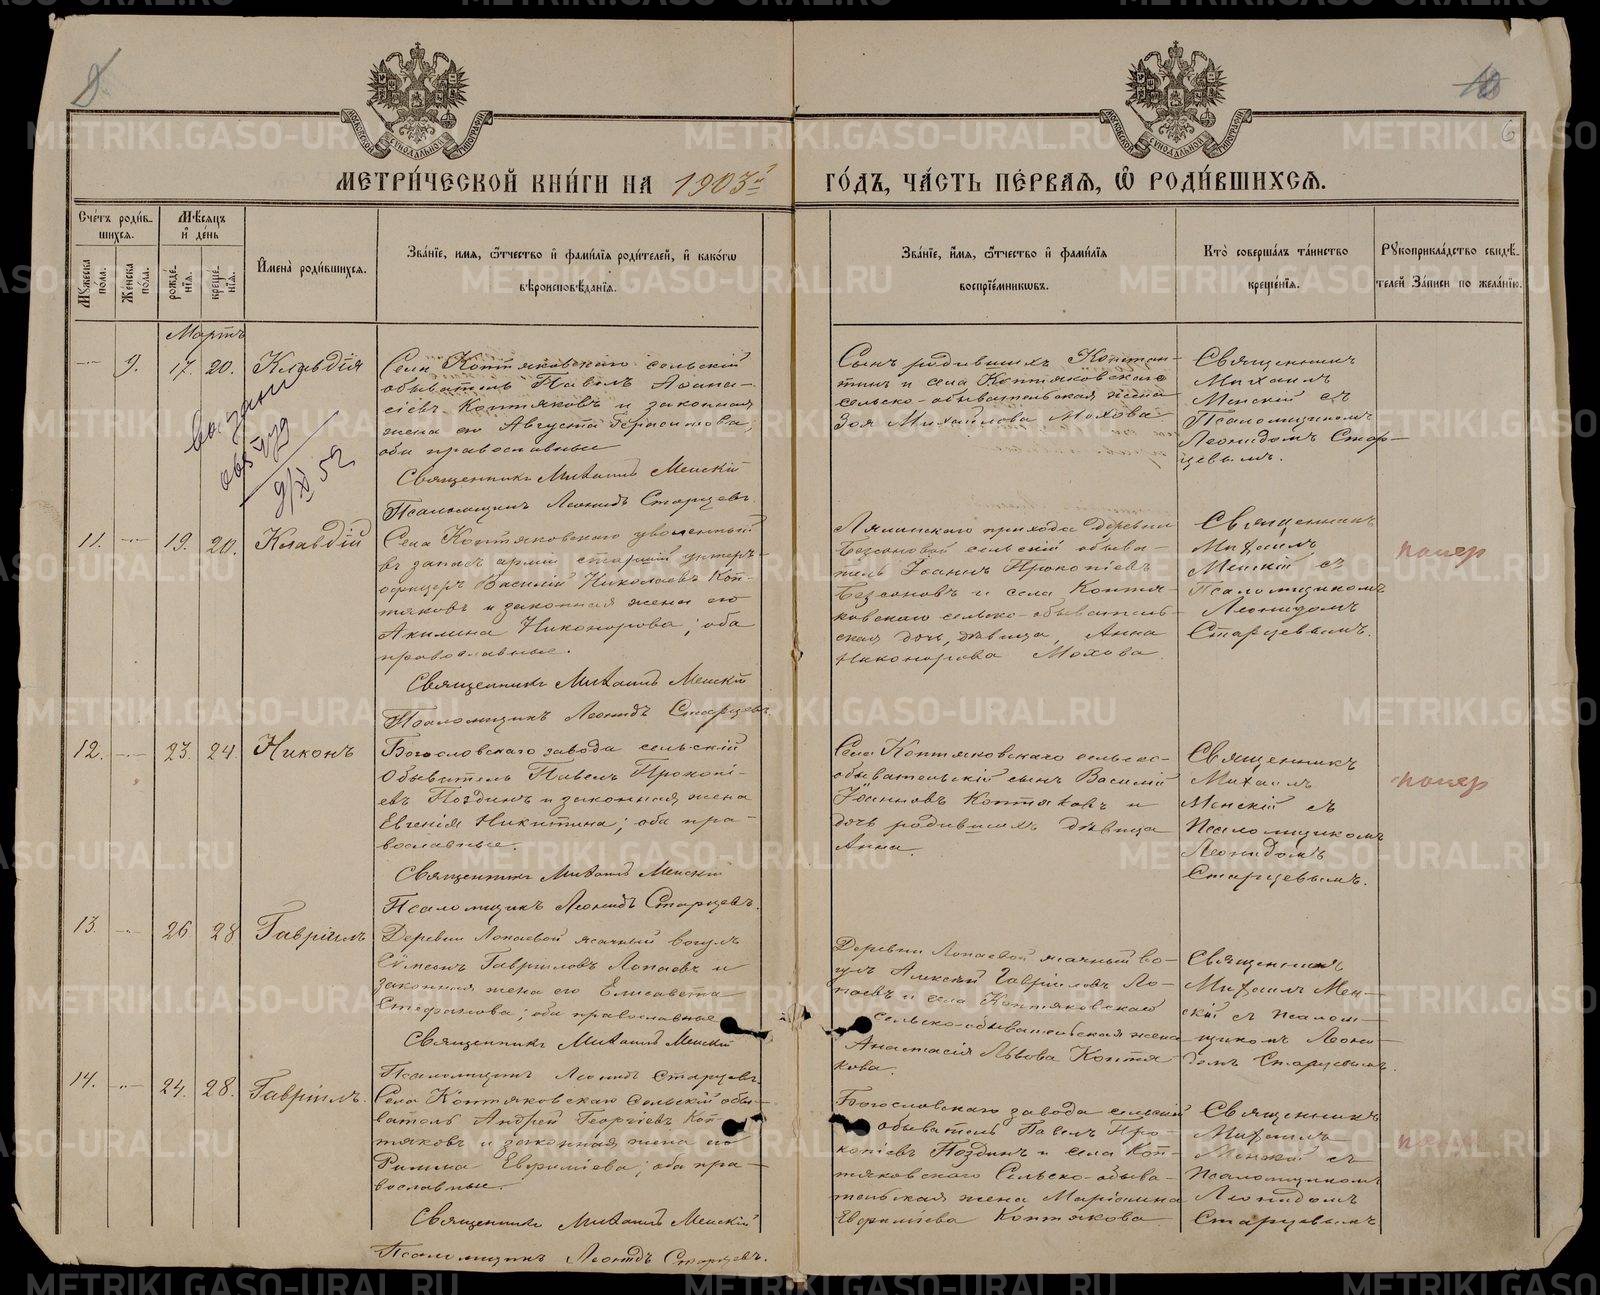 МЕТРИ́ЧЕСКОЙ КНИ́ГИ НА 1903й ГО́ДЪ, ЧА́СТЬ ПЕ́РВАЯ, Ѽ РОДИ́ВШИХСЯ.
Сче́тъ роди́в-
шихся.
Му́жеска пола.
Же́нска по́ла.
Мѣ́сяцъ
и де́нь
рожде́-
нїя.
креще́-
нїя.
Имена̀ роди́вшихся.
Зва́нїе, имя, ѻ҆́тчество и фами́лїя роди́телей, и како́гѡ
вѣроисповѣ́данїя.
Зва́нїе, и́мя, ѻ҆́тчество и фами́лїя
воспрїе́мникѡвъ.
Кто̀ соверша́лъ та́инство
креще́нїя.
Рꙋкоприкла́дство свидѣ́-
телей За́писи по жела́нїю.
6
Мартъ
9. 17. 20. Клавдія
Села Коптяковскаго сельскій
обыватель Павелъ Аѳана-
сіевъ Коптяковъ и законная
жена его Августа Герасимова;
оба православные
Священникъ Михаилъ Менскій
Псаломщикъ Леонидъ Старцевъ.
Коптяковскаго
сельско-обывательская жена
Зоя Михайлова Мохова
Священникъ
Михаилъ
Менскій съ
Псаломщикомъ
Леонидомъ Стар-
цевымъ.
9/XI 52
11. 19. 20. Клавдій
Села Коптяковскаго уволенный
въ запасъ арміи старшій унтеръ-
офицеръ Василій Николаевъ Коп-
тяковъ и законная жена его
Акилина Никонорова; оба
православные.
Священникъ Михаилъ Менскій
Псаломщикъ Леонидъ Старцевъ
Лялинскаго прихода деревни
Безсоновой сельскій обыва-
тель Іоаннъ Прокопіевъ
Безсоновъ и села Коптя-
ковскаго сельско-обыватель-
ская дочь, дѣвица, Анна
Никонорова Мохова.
Священникъ
Михаилъ
Менскій съ
Псаломщикомъ
Леонидомъ
Старцевымъ.
помер
12. 23. 24. Никонъ
Богословскаго завода сельскій
обыватель Павелъ Прокопі-
евъ Поздинъ и законная жена
Евгенія Никитина; оба пра-
вославные.
Священникъ Михаилъ Менскій
Псаломщикъ Леонидъ Старцевъ.
Села Коптяковскаго сельско-
обывательскій сынъ Василій
Іоанновъ Коптяковъ и
дочь родившихъ дѣвица
Анна.
Священникъ
Михаилъ
Менскій съ
Псаломщикомъ
Леонидомъ
Старцевымъ.
помер
13. 26 28 Гавріилъ
Деревни Лопаевой ясачный вогулъ
Сѵмеонъ Гавріиловъ Лопаевъ и
законная жена его Елисавета
Стефанова; оба православные
Священникъ Михаилъ Менскій
Псаломщикъ Леонидъ Старцевъ.
Деревни Лопаевой ясачный во-
гулъ Алексѣй Гавріиловъ Ло-
паевъ и села Коптяковскаго
сельско-обывательская жена
Анастасія Львова Коптя-
кова.
Священникъ
Михаилъ Мен-
скій съ Псалом-
щикомъ Леони-
домъ Старцевымъ.
14. 24. 28. Гавріилъ.
Села Коптяковскаго Сельскій обы-
ватель Андрей Георгіевъ Коп-
тяковъ и законная жена его
Евфиміева; оба пра-
вославные.
Священникъ Михаилъ Менскій
Псаломщикъ Леонидъ Старцевъ.
Богословскаго завода сельскій
обыватель Павелъ Про-
копіевъ Поздинъ и села Коп-
тяковскаго Сельско-обыва-
тельская жена
Евфиміева Коптякова
Священникъ
Михаилъ
Менскій съ
Псаломщикомъ
Леонидомъ
Старцевымъ
METRIKI.GASO-URAL.RU